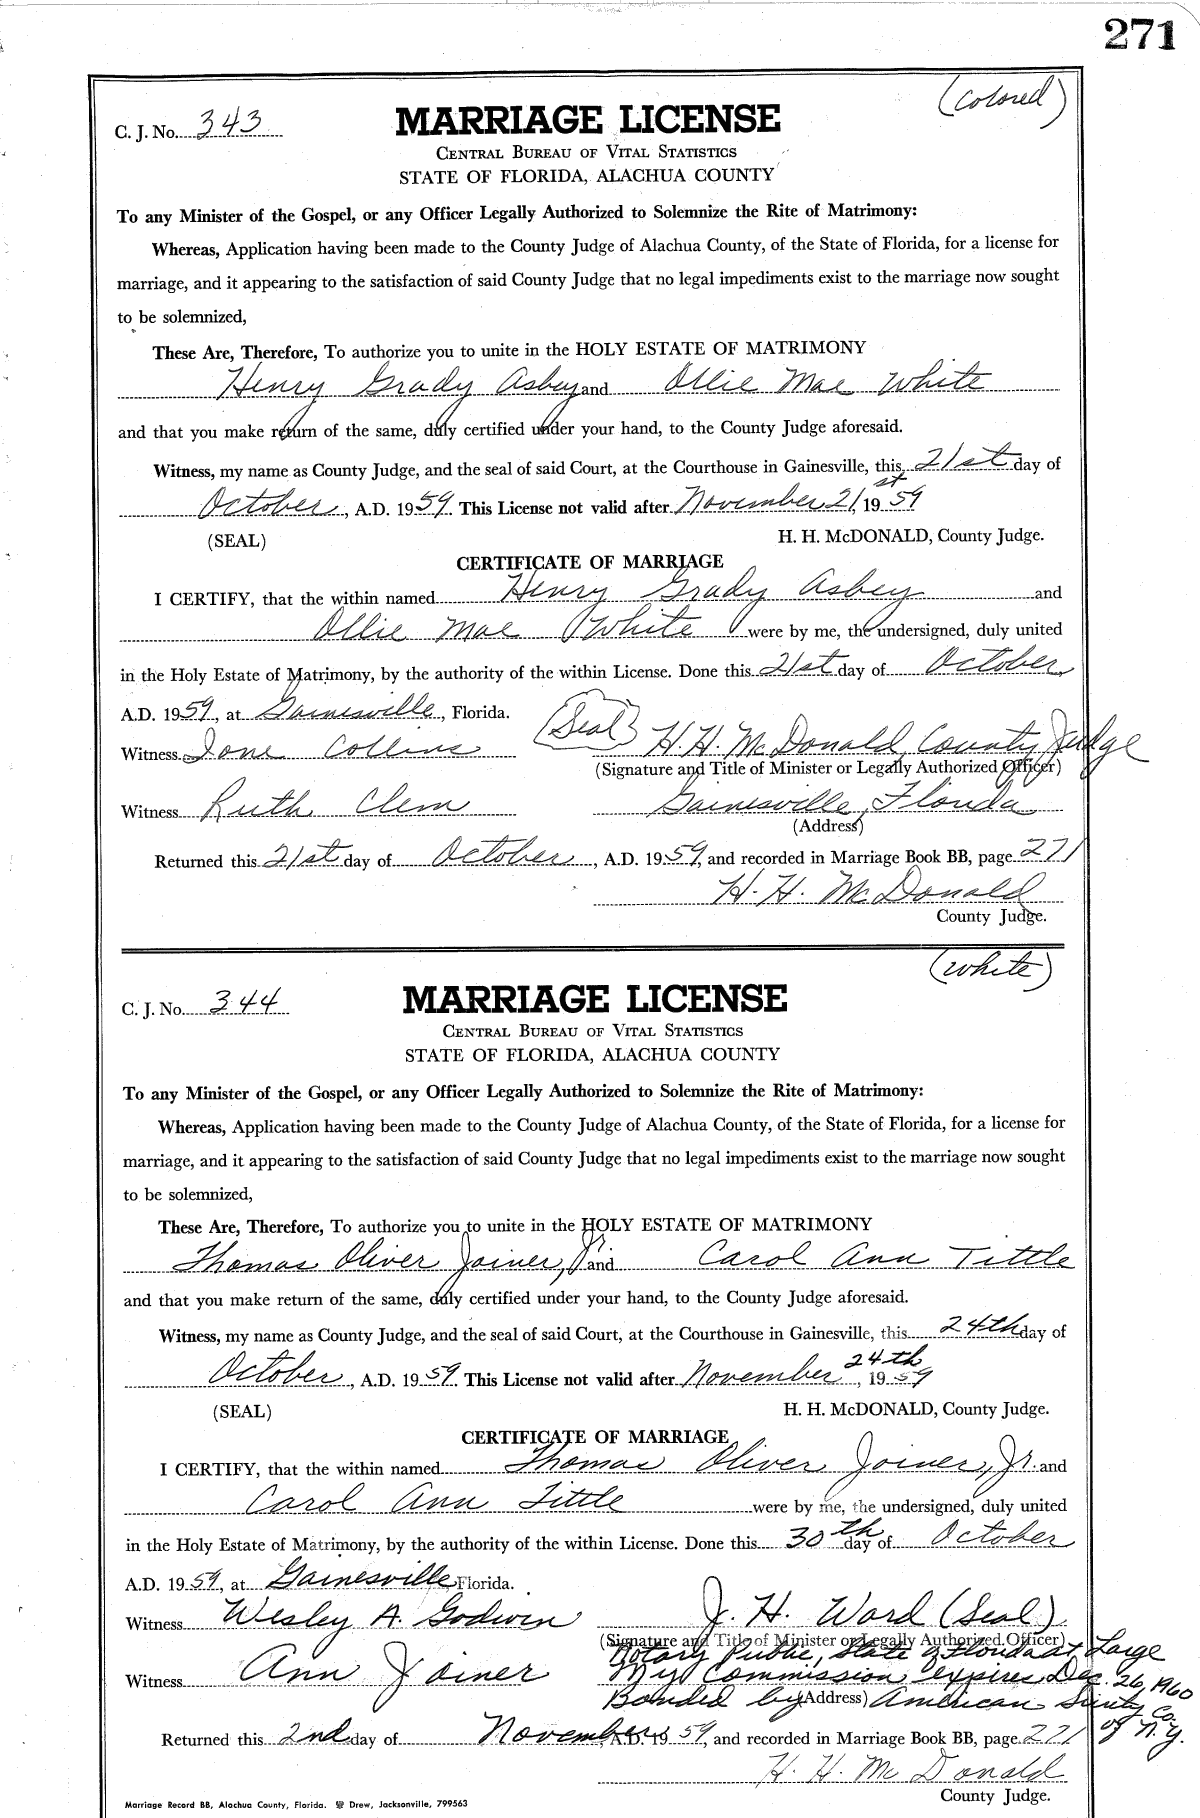 271
(colored)
C. J. No. 343
MARRIAGE LICENSE
CENTRAL BUREAU OF VITAL STATISTICS
STATE OF FLORIDA, ALACHUA COUNTY
To any Minister of the Gospel, or any Officer Legally Authorized to Solemnize the Rite of Matrimony:
Whereas, Application having been made to the County Judge of Alachua County, of the State of Florida, for a license for
marriage, and it appearing to the satisfaction of said County Judge that no legal impediments exist to the marriage now sought
to be solemnized,
These Are, Therefore, To authorize you to unite in the HOLY ESTATE OF MATRIMONY
Henry Grady Asbey and Ollie Mae White
and that you make return of the same, duly certified under your hand, to the County Judge aforesaid.
Witness, my name as County Judge, and the seal of said Court, at the Courthouse in Gainesville, this 21st day of
October, A.D. 1959. This License not valid after November 21st, 1959
(SEAL) H. H. McDONALD, County Judge.
CERTIFICATE OF MARRIAGE
I CERTIFY, that the within named Henry Grady Asbey and
Ollie Mae White were by me, the undersigned, duly united
in the Holy Estate of Matrimony, by the authority of the within License. Done this 21st day of October,
A.D. 1959, at Gainesville, Florida. (Seal)
Witness Ione Collins H. H. McDonald, County Judge
(Signature and Title of Minister or Legally Authorized Officer)
Witness Ruth Clem Gainesville, Florida
(Address)
Returned this 21st day of October, A.D. 1959, and recorded in Marriage Book BB, page 271
H. H. McDonald
County Judge.
(white)
C. J. No. 344
MARRIAGE LICENSE
CENTRAL BUREAU OF VITAL STATISTICS
STATE OF FLORIDA, ALACHUA COUNTY
To any Minister of the Gospel, or any Officer Legally Authorized to Solemnize the Rite of Matrimony:
Whereas, Application having been made to the County Judge of Alachua County, of the State of Florida, for a license for
marriage, and it appearing to the satisfaction of said County Judge that no legal impediments exist to the marriage now sought
to be solemnized,
These Are, Therefore, To authorize you to unite in the HOLY ESTATE OF MATRIMONY
Thomas Oliver Joiner, Jr. and Carol Ann Tittle
and that you make return of the same, duly certified under your hand, to the County Judge aforesaid.
Witness, my name as County Judge, and the seal of said Court, at the Courthouse in Gainesville, this 24th day of
October, A.D. 1959. This License not valid after November 24th, 1959
(SEAL) H. H. McDONALD, County Judge.
CERTIFICATE OF MARRIAGE
I CERTIFY, that the within named Thomas Oliver Joiner, Jr. and
Carol Ann Tittle were by me, the undersigned, duly united
in the Holy Estate of Matrimony, by the authority of the within License. Done this 30th day of October
A.D. 1959, at Gainesville Florida.
Witness Wesley A. Godwin J. H. Ward (Seal)
(Signature and Title of Minister or Legally Authorized Officer)
Notary Public, State of Florida at Large
Witness Ann Joiner My Commission expires Dec. 26, 1960
Bonded by (Address) American Surety Co. of N.Y.
Returned this 2nd day of November, A.D. 1959, and recorded in Marriage Book BB, page 271
H. H. McDonald
County Judge.
Marriage Record BB, Alachua County, Florida. Drew, Jacksonville, 799563